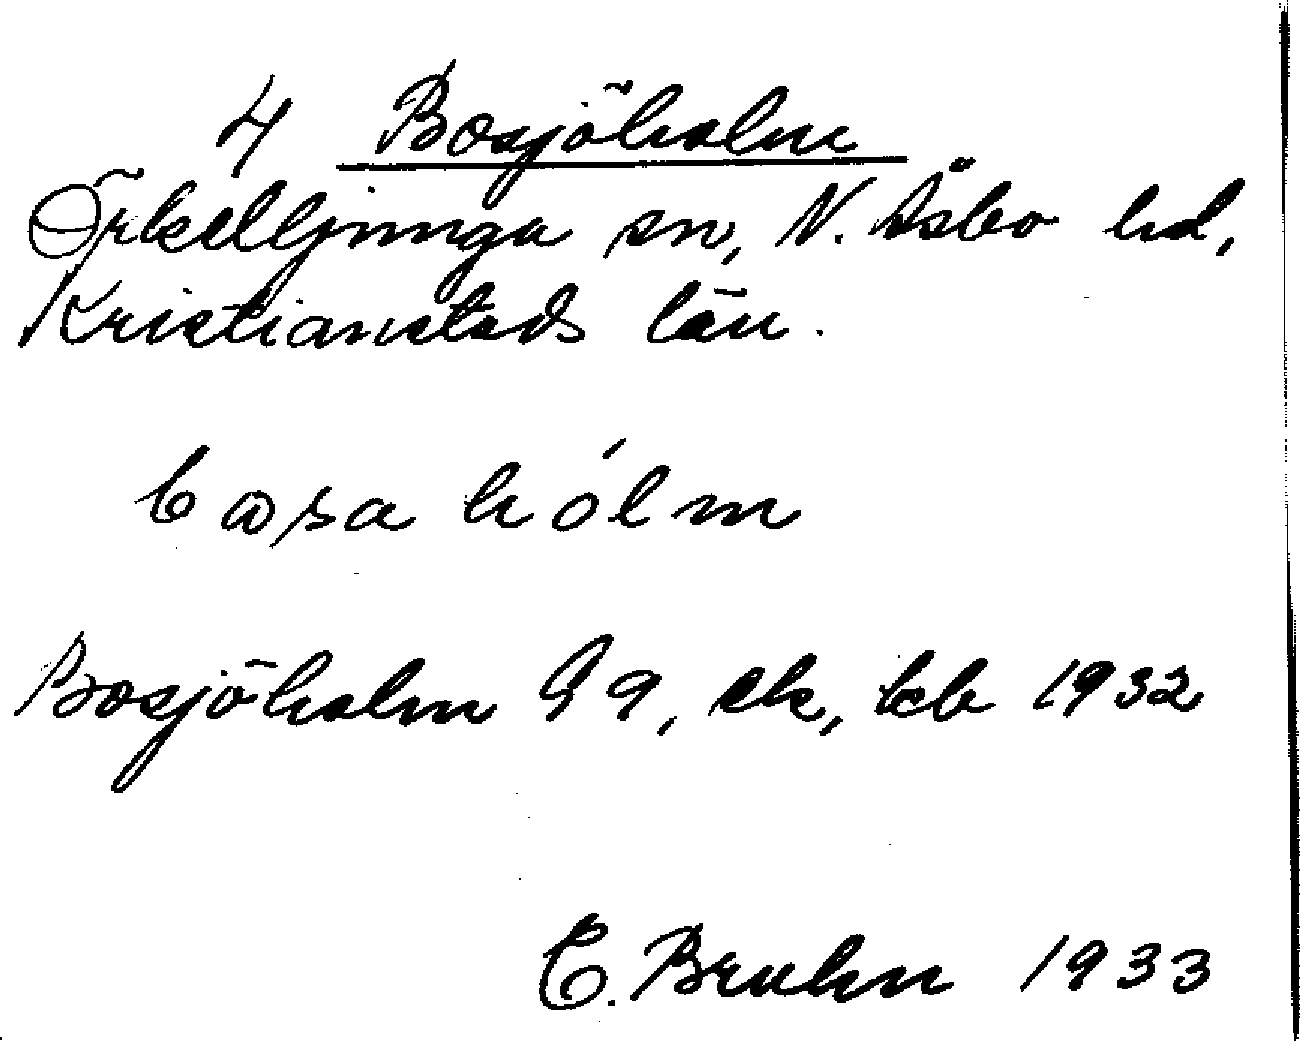 4 Bosjöholm
Örkelljunga sn, N. Åsbo hd,
Kristianstads län.
basa hólm
Bosjöholm Gg, ek, kb 1932
C. Bruhn 1933